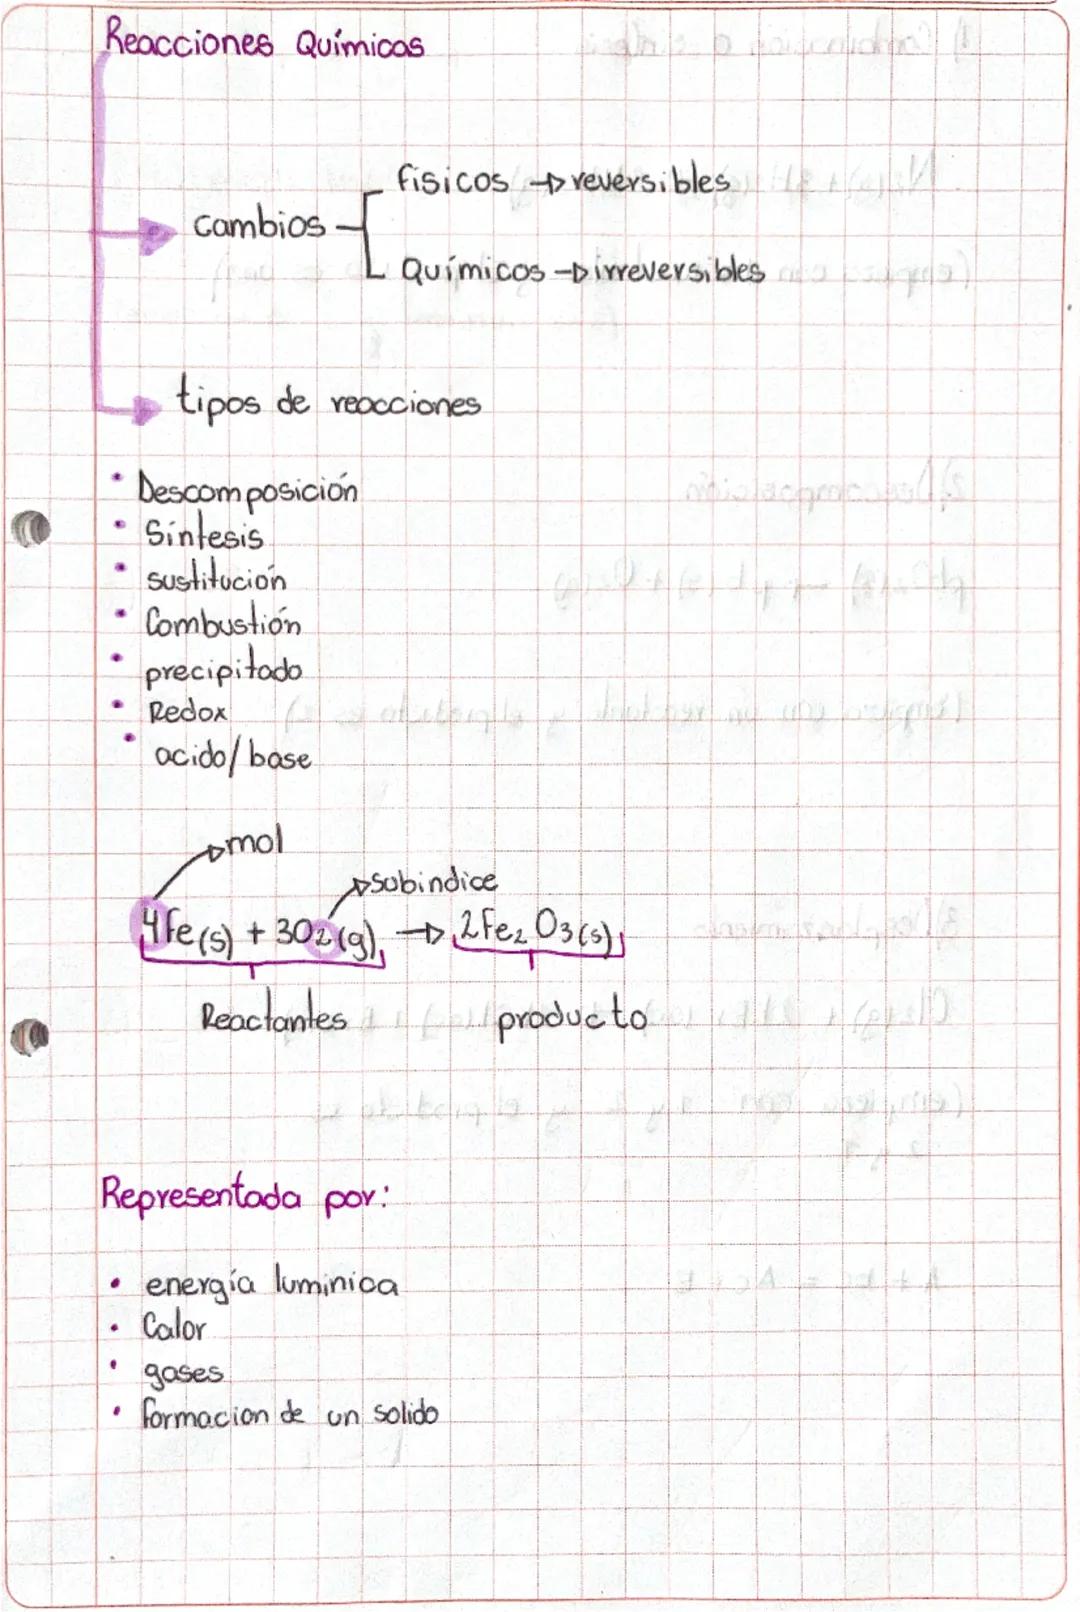 Reacciones Químicas
cambios
físicos → reversibles
Químicos → irreversibles
tipos de reacciones
• Descomposición
• Síntesis
• sustitución
• Combustión
• precipitado
• Redox
• acido/base
mol
subindice
4Fe(s) + 3O2(g) → 2Fe2O3(s)
Reactantes producto
Representada por:
• energía luminica
• Calor
• gases
• formacion de un solido